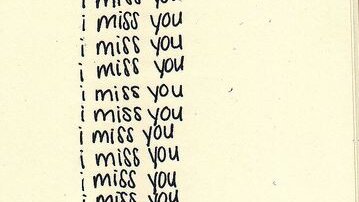 i miss you
i miss you
i miss you
i miss you
i miss you
i miss you
i miss you
i miss you
i miss you
i miss you